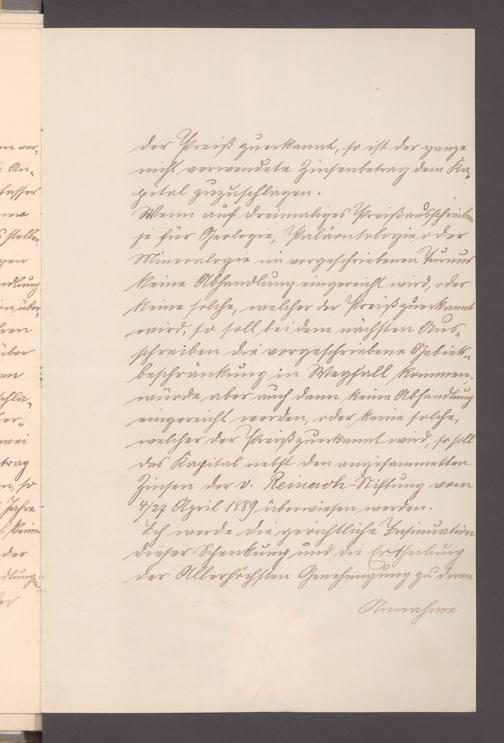 der Preiß zuerkannt, so ist der ganze
nicht verwendete Zinsenbetrag dem Ka-
pital zuzuschlagen.
Wenn auf dreimaliges Preißausschreiben
je für Geologie, Paläontologie oder
Mineralogie im vorgeschriebenen Turnus
keine Abhandlung eingereicht wird, oder
keine solche, welcher der Preiß zuerkannt
wird, so soll bei dem nächsten Aus-
schreiben die vorgeschriebene Gebiets-
beschränkung in Wegfall kommen,
würde aber auch dann keine Abhandlung
eingereicht werden, oder keine solche,
welcher der Preiß zuerkannt wird, so soll
das Kapital nebst den angesammelten
Zinsen der v. Reinach-Stiftung vom
4/27 April 1889 überwiesen werden.
Ich werde die gerichtliche Insinuation
dieser Schenkung und die Ertheilung
der Allerhöchsten Genehmigung zu deren
Annahme